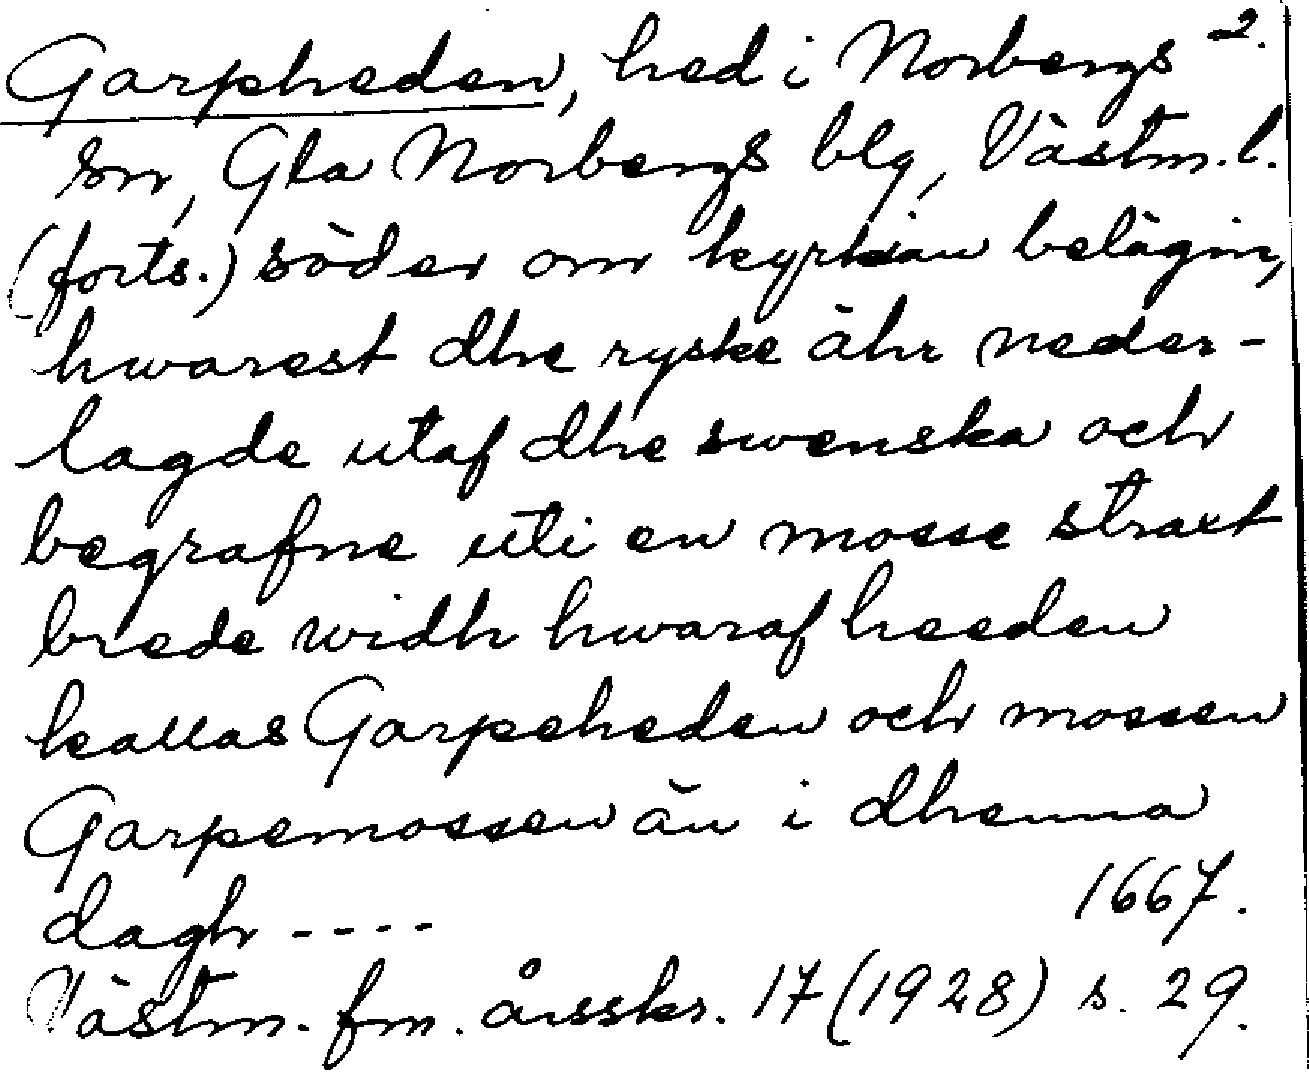 Garpheden, hed i Norbergs 2.
sn, Gla Norbergs blg, Västm. l.
(forts.) söder om kyrkian belägin,
hwarest dhe ryske ähr neder-
lagde utaf dhe swenska och
begrafne uti en mosse straxt
brede widh hwaraf heeden
kallas Garpeheden och mossen
Garpemossen än i dhenna
dagh ---- 1667.
Västm. fm. årsskr. 17 (1928) s. 29.